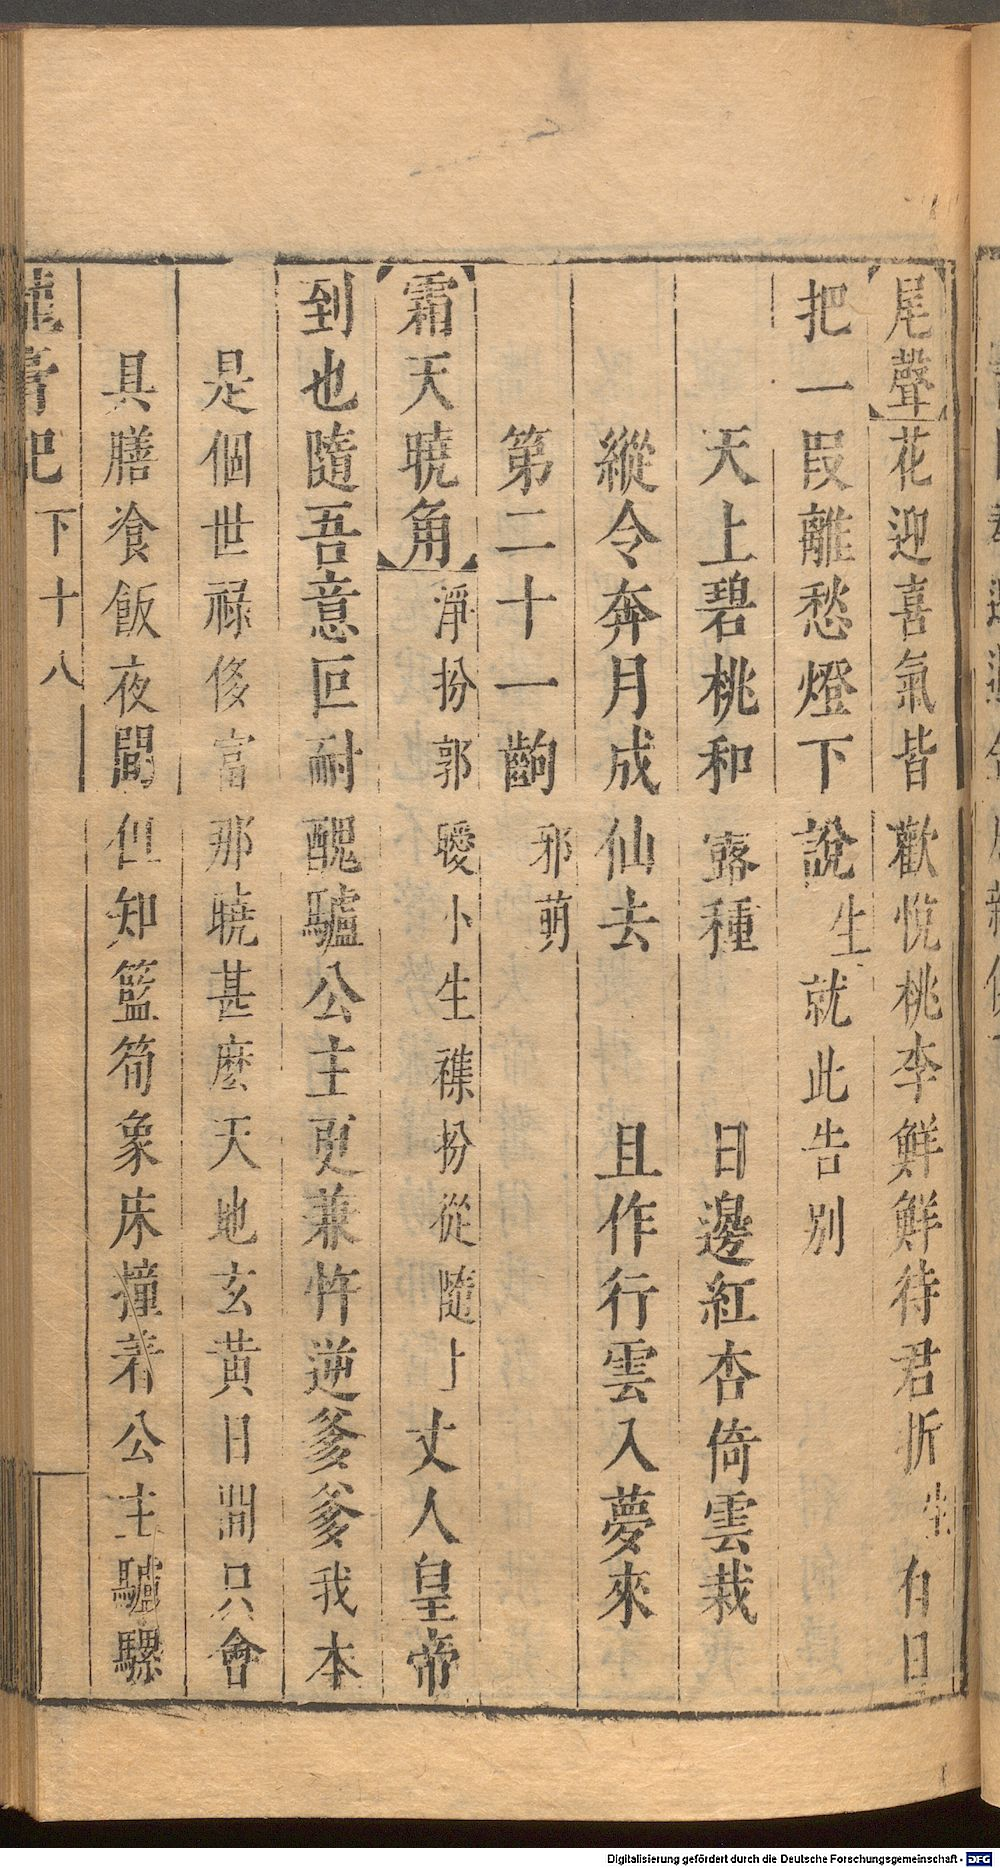 尾聲花迎喜氣皆歡悅桃李鮮鮮待君折生有日
把一段離愁燈下說生就此告別
天上碧桃和露種 日邊紅杏倚雲栽
縱令奔月成仙去 且作行雲入夢來
第二十一齣 邪萌
霜天曉角淨扮郭曖小生襍扮從隨上丈人皇帝
到也隨吾意叵耐醜驢公主更兼忤逆爹爹我本
是個世祿侈富那曉甚麽天地玄黃日間只會
具膳飡飯夜間但知籃筍象床撞着公主驢騾
龍膏記 下十八
Digitalisierung gefördert durch die Deutsche Forschungsgemeinschaft - DFG